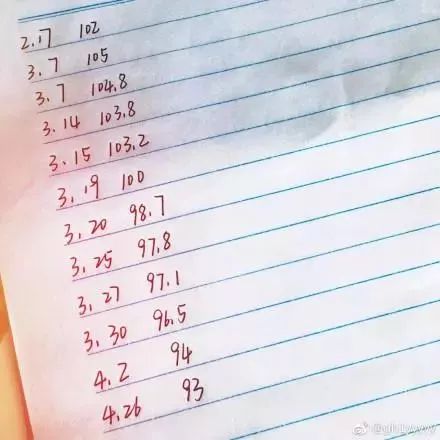 2.17 102
3.7 105
3.7 104.8
3.14 103.8
3.15 103.2
3.19 100
3.20 98.7
3.25 97.8
3.27 97.1
3.30 96.5
4.2 94
4.26 93